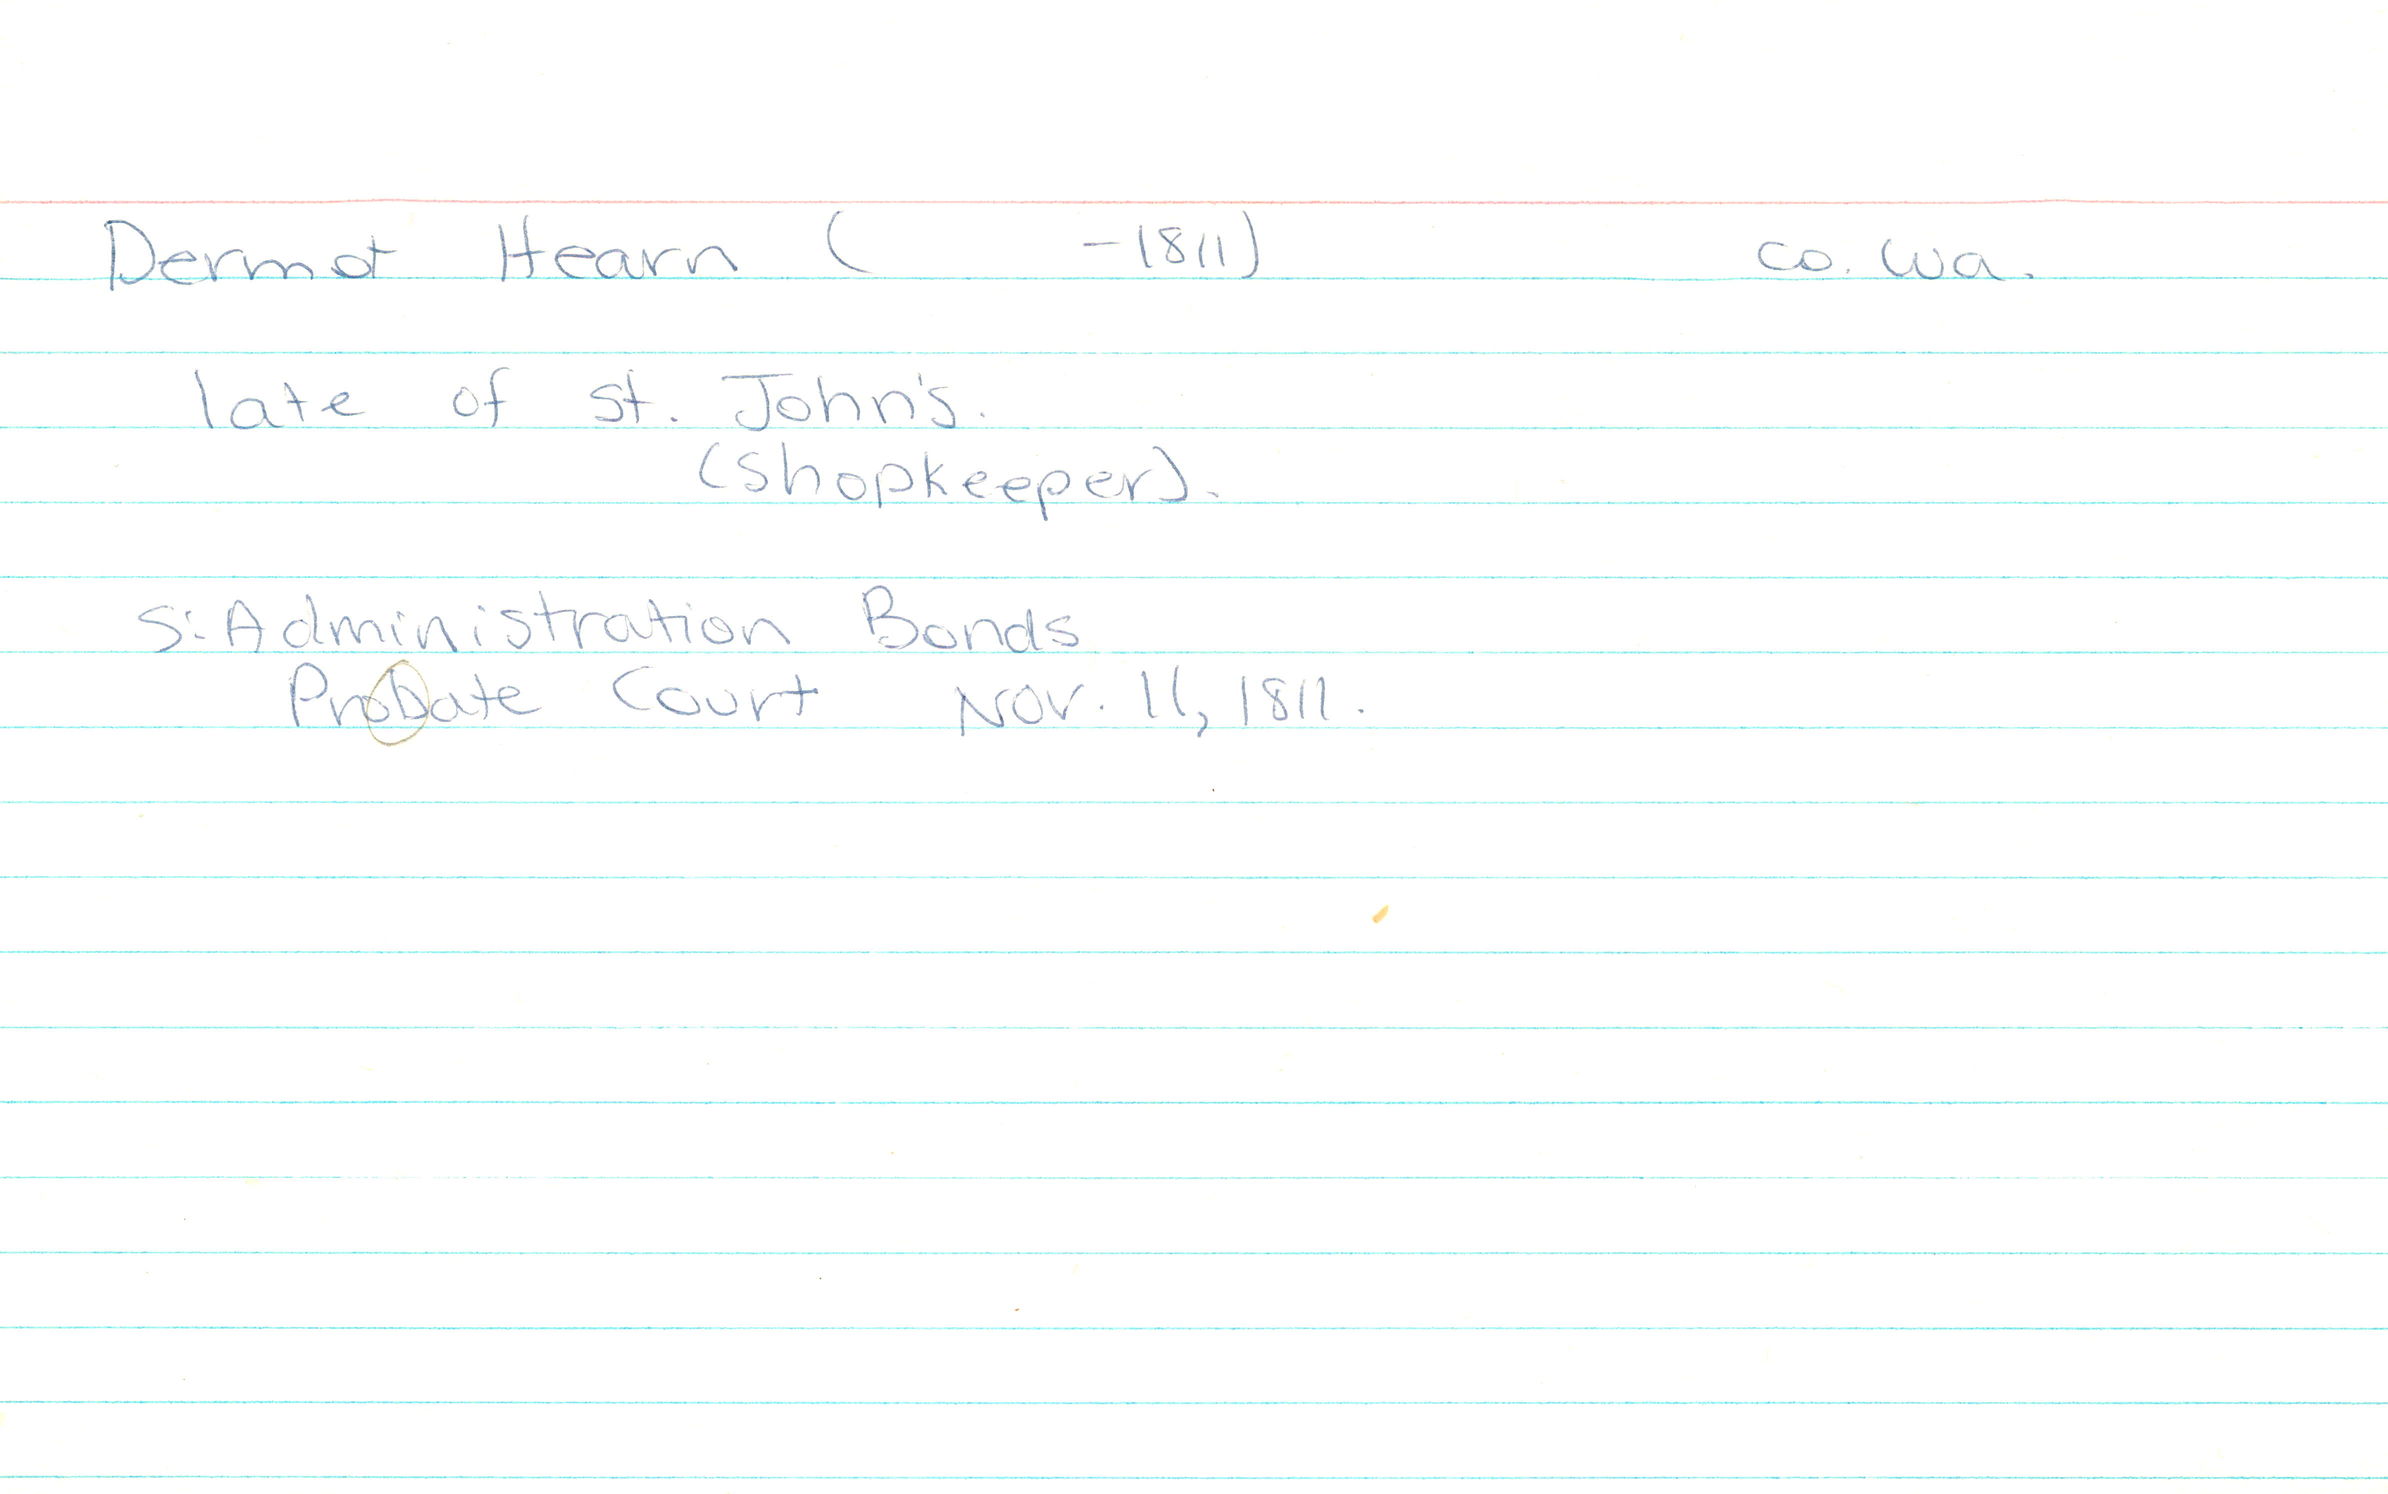 Dermot Hearn ( -1811) co. Wa.
late of St. John's.
(shopkeeper).
S: Administration Bonds
Probate Court Nov. 11, 1811.